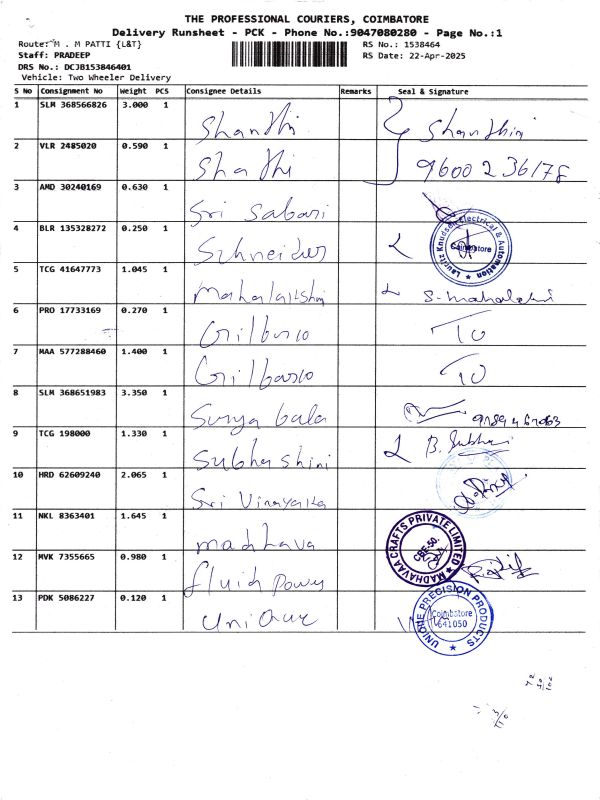 THE PROFESSIONAL COURIERS, COIMBATORE
Delivery Runsheet - PCK - Phone No.:9047080280 - Page No.:1
Route: M . M PATTI {L&T}
RS No.: 1538464
Staff: PRADEEP
RS Date: 22-Apr-2025
DRS No.: DCJB153846401
Vehicle: Two Wheeler Delivery
S No Consignment No Weight PCS Consignee Details Remarks Seal & Signature
1 SLM 368566826 3.000 1 Shanthi Shanthini
2 VLR 2485020 0.590 1 Shathi 9600236178
3 AMD 30240169 0.630 1 Sri Sabari
4 BLR 135328272 0.250 1 Schneider Lauritz Knudsen Electrical & Automation Coimbatore
5 TCG 41647773 1.045 1 Mahalakshmi S. Mahalakshmi
6 PRO 17733169 0.270 1 Gilbarco
7 MAA 577288460 1.400 1 Gilbarco
8 SLM 368651983 3.350 1 Surya bala
9 TCG 198000 1.330 1 Subhashini B. Subhani
10 HRD 62609240 2.065 1 Sri Vinayaka
11 NKL 8363401 1.645 1 Madhava MADHAVAA CRAFTS PRIVATE LIMITED
12 MVK 7355665 0.980 1 fluid power
13 PDK 5086227 0.120 1 Unique UNIQUE PRECISION PRODUCTS Coimbatore 641050